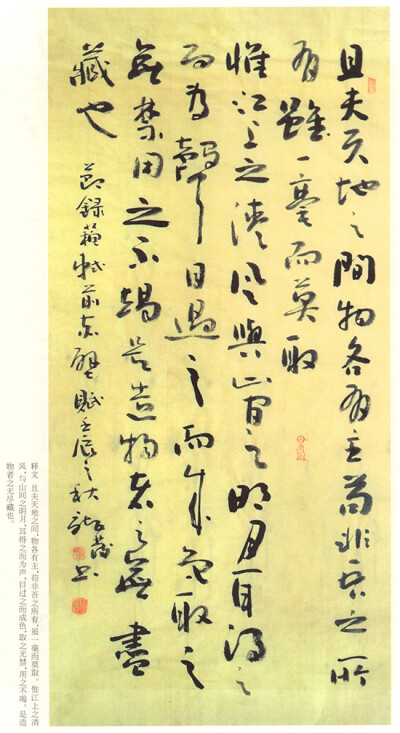 且夫天地之間物各有主苟非吾之所
有雖一毫而莫取
惟江上之清风與山間之明月耳得之
而为聲目過之而成色取之
無禁用之不竭是造物者之無盡
藏也
節録蘇軾前赤壁賦壬辰之秋 書
释文 且夫天地之间,物各有主,苟非吾之所有,虽一毫而莫取。惟江上之清
风,与山间之明月,耳得之而为声,目过之而成色,取之无禁,用之不竭。是造
物者之无尽藏也。